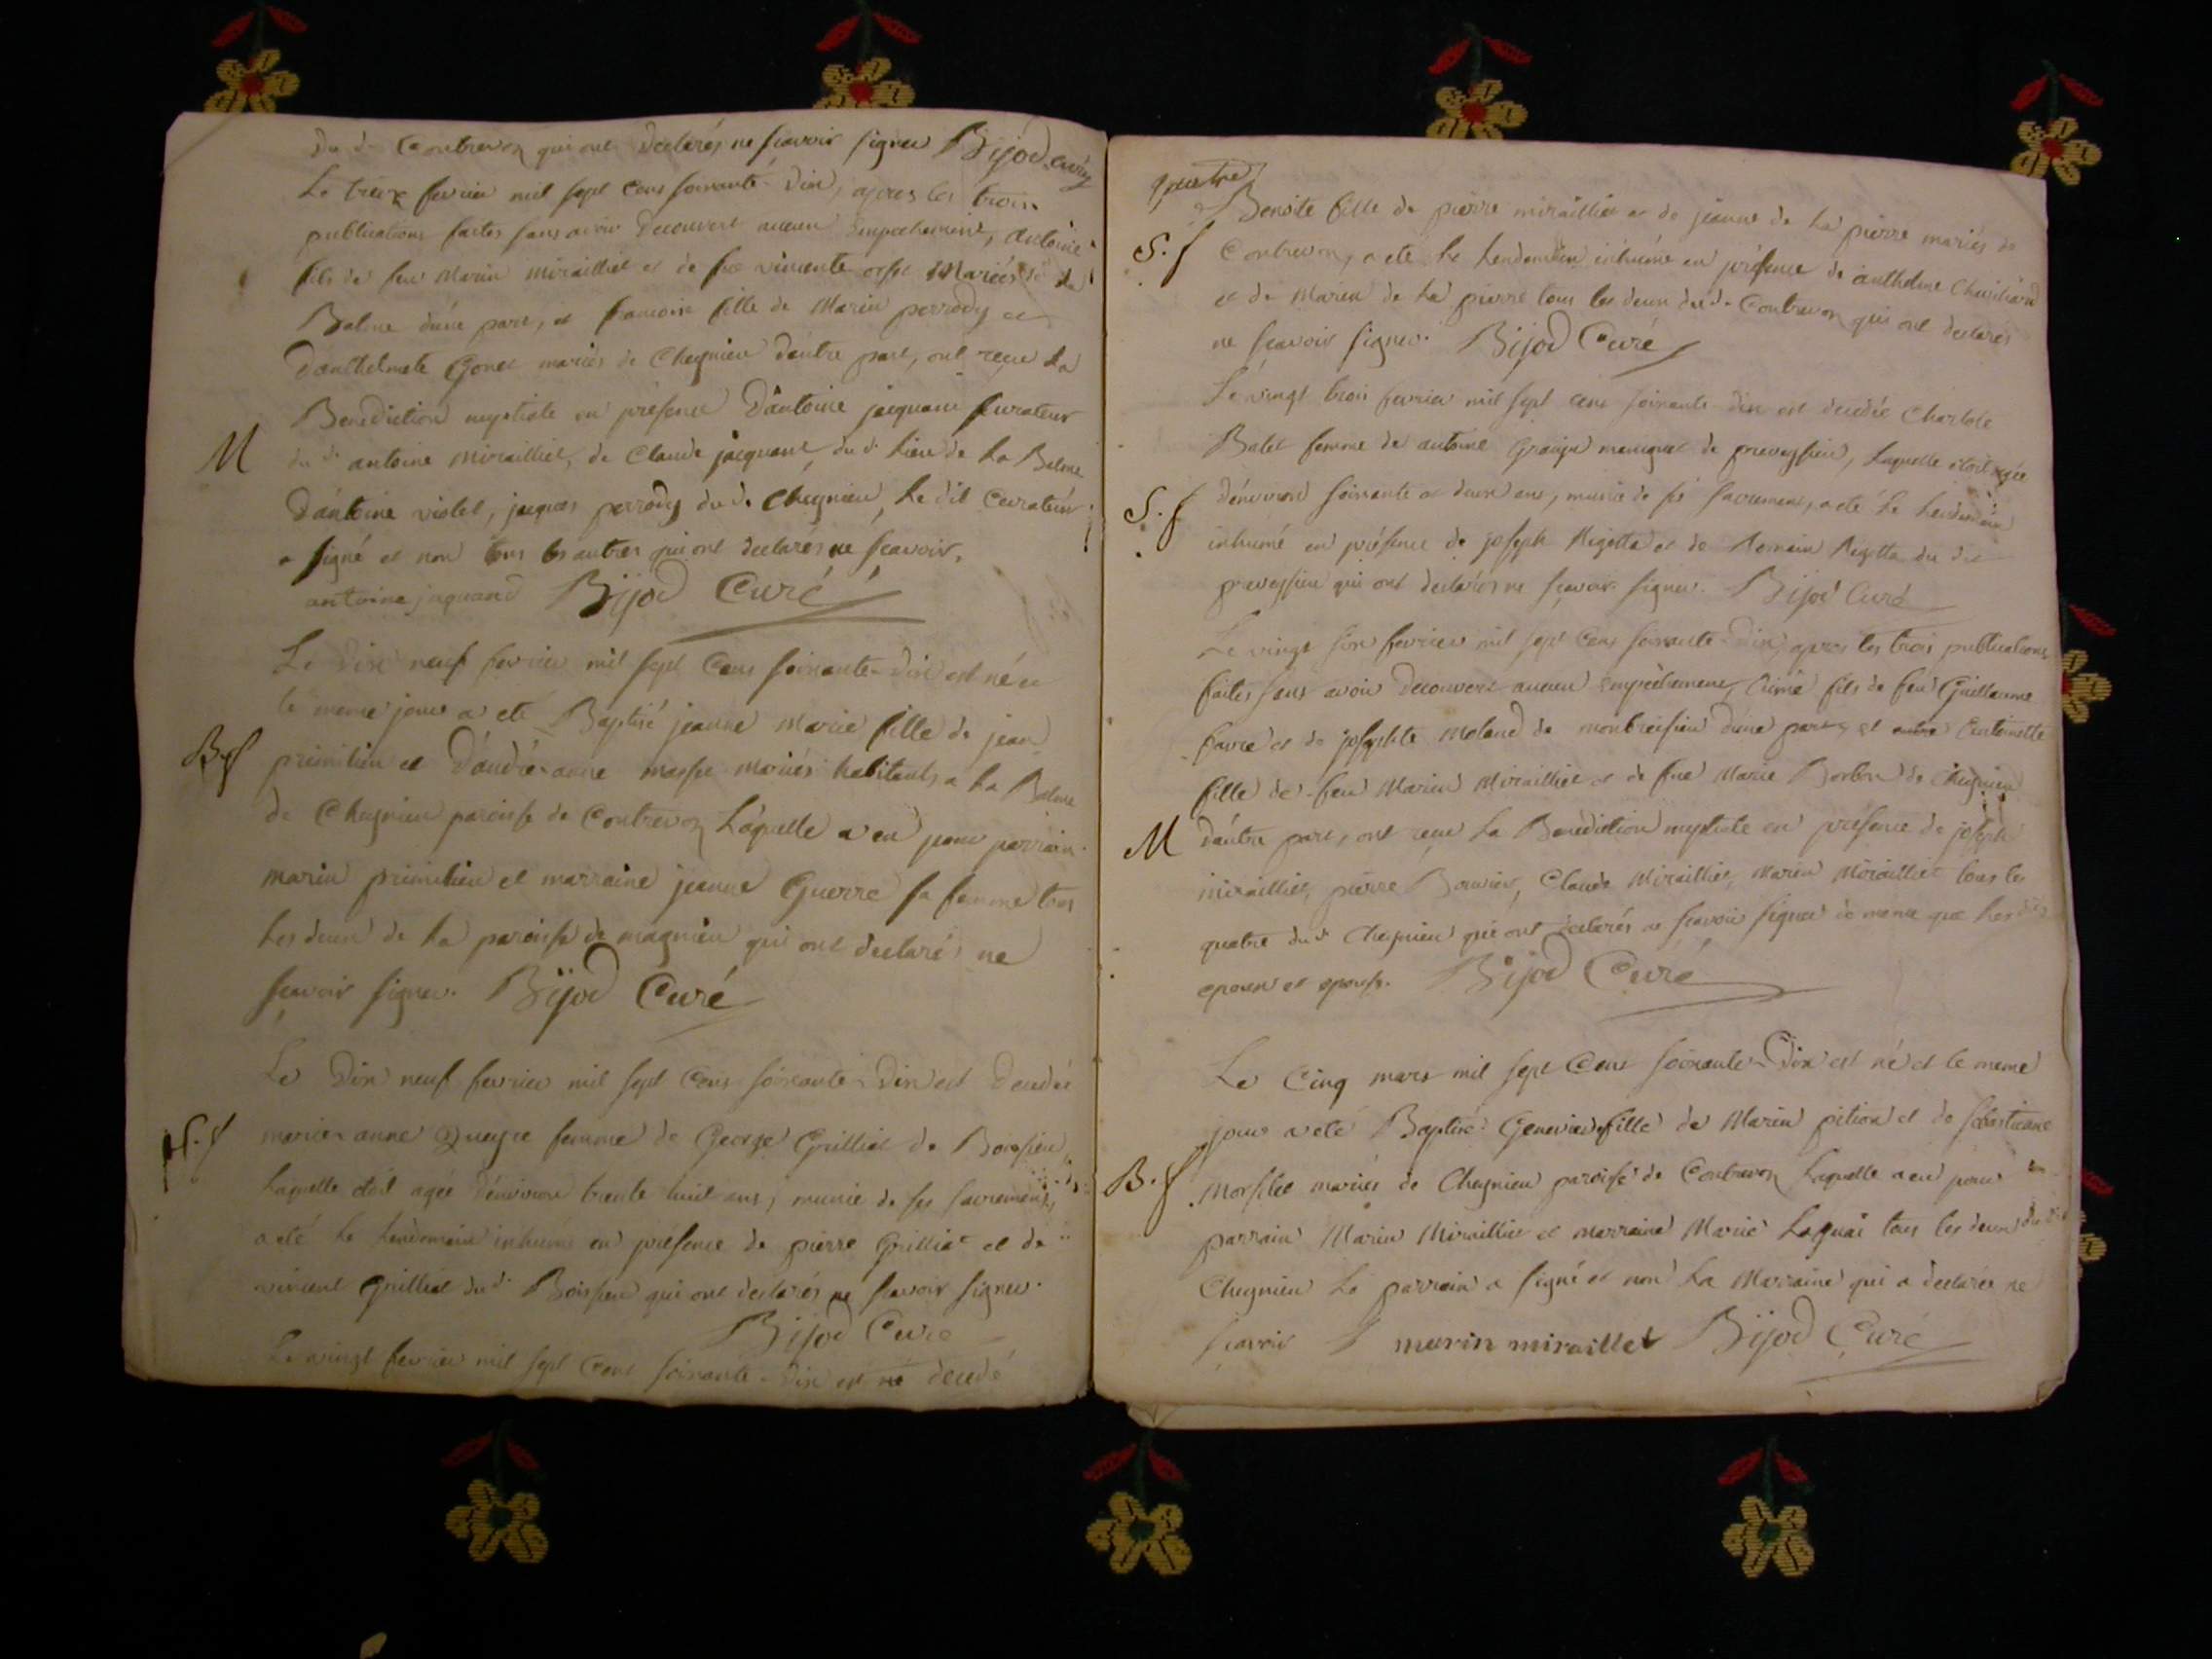 du d. Contrevoz qui ont declarés ne sçavoir signer Bijod curé
Le treize fevrier mil sept cens soixante-dix, apres les trois
publications faites sans avoir decouvert aucun Empechement, antoine
fils de feu Marin mirailliet et de fue vincente Mariés de la
Balme d'une part, et francoise fille de Marin perrody et
d'anthelmete Gonet mariés de Chegnieu d'autre part, ont reçu la
Benediction nuptiale en présence d'antoine jacquand curateur
M
du d. antoine Mirailliet, de Claude jacquand, du d. Lieu de La Balme
D'antoine violet, jacques perrody du d. Chegnieu, Le dit Curateur
a signé et non tous les autres qui ont declarés ne sçavoir.
antoine jaquand Bijod Curé
Le dix neuf fevrier mil sept cens soixante-dix est née et
le meme jour a eté Baptisé jeanne Marie fille de jean
B. f
primilieu et d'andré-anne masse mariés habitants a La Balme
de Chegnieu paroisse de Contrevoz Laquelle a eu pour parrain
marin primilieu et marraine jeanne Guerre sa femme tous
Les deux de La paroisse de magnieu qui ont declaré ne
sçavoir signer. Bijod Curé
Le Dix neuf fevrier mil sept Cens soixante-Dix est Decedée
S. f
marie-anne femme de George Grilliet de Boissieu,
Laquelle etoit agée d'environ trente huit ans, munie de ses sacremens,
a eté Le Lendemain inhumé en présence de pierre Grilliet et de
vincent Grilliet du d. Boissieu qui ont declarés ne sçavoir signer.
Bijod Curé
Le vingt fevrier mil sept Cens soixante-dix est né decedé
quatre
Benoite fille de pierre mirailliet et de jeanne de La pierre mariés de
S. f
Contrevoz, a eté Le Lendemain inhumé en présence de anthelme
et de Marin de La pierre tous les deux du d. Contrevoz qui ont declarés
ne sçavoir signer. Bijod Curé
Le vingt trois fevrier mil sept cens soixante-dix est decedée Charlote
Balet femme de antoine de preveyssieu, Laquelle etoit agée
S. f
d'environ soixante et deux ans, munie de ses sacremens, a eté Le Lendemain
inhumé en présence de joseph Rigotta et de Romain Rigotta du dit
preveyssieu qui ont declarés ne sçavoir signer. Bijod Curé
Le vingt six fevrier mil sept Cens soixante-Dix, apres les trois publications
faites sans avoir decouvert aucun Empêchement, Aimé fils de feu Guillaume
favre et de josephte Moland de monbreisieu d'une part, et autre Antoinette
fille de feu Marin Mirailliet et de fue Marie de Chegnieu
M
d'autre part, ont reçu La Benediction nuptiale en présence de joseph
mirailliet, pierre Bouvier, Claude Mirailliet, Marin Mirailliet tous les
quatre du d. Chegnieu qui ont declarés ne sçavoir signer de meme que Les dits
epoux et epouse. Bijod Curé
Le Cinq mars mil sept Cens soixante-Dix est né et le meme
jour a eté Baptisé Genevieve fille de Marin pition et de sebastienne
B. f
mariés de Chegnieu paroisse de Contrevoz Laquelle a eu pour
parrain Marin Mirailliet et marraine Marie Laguai tous les deux du dit
Chegnieu Le parrain a signé et non La Marraine qui a declarés ne
sçavoir marin miraillet Bijod Curé